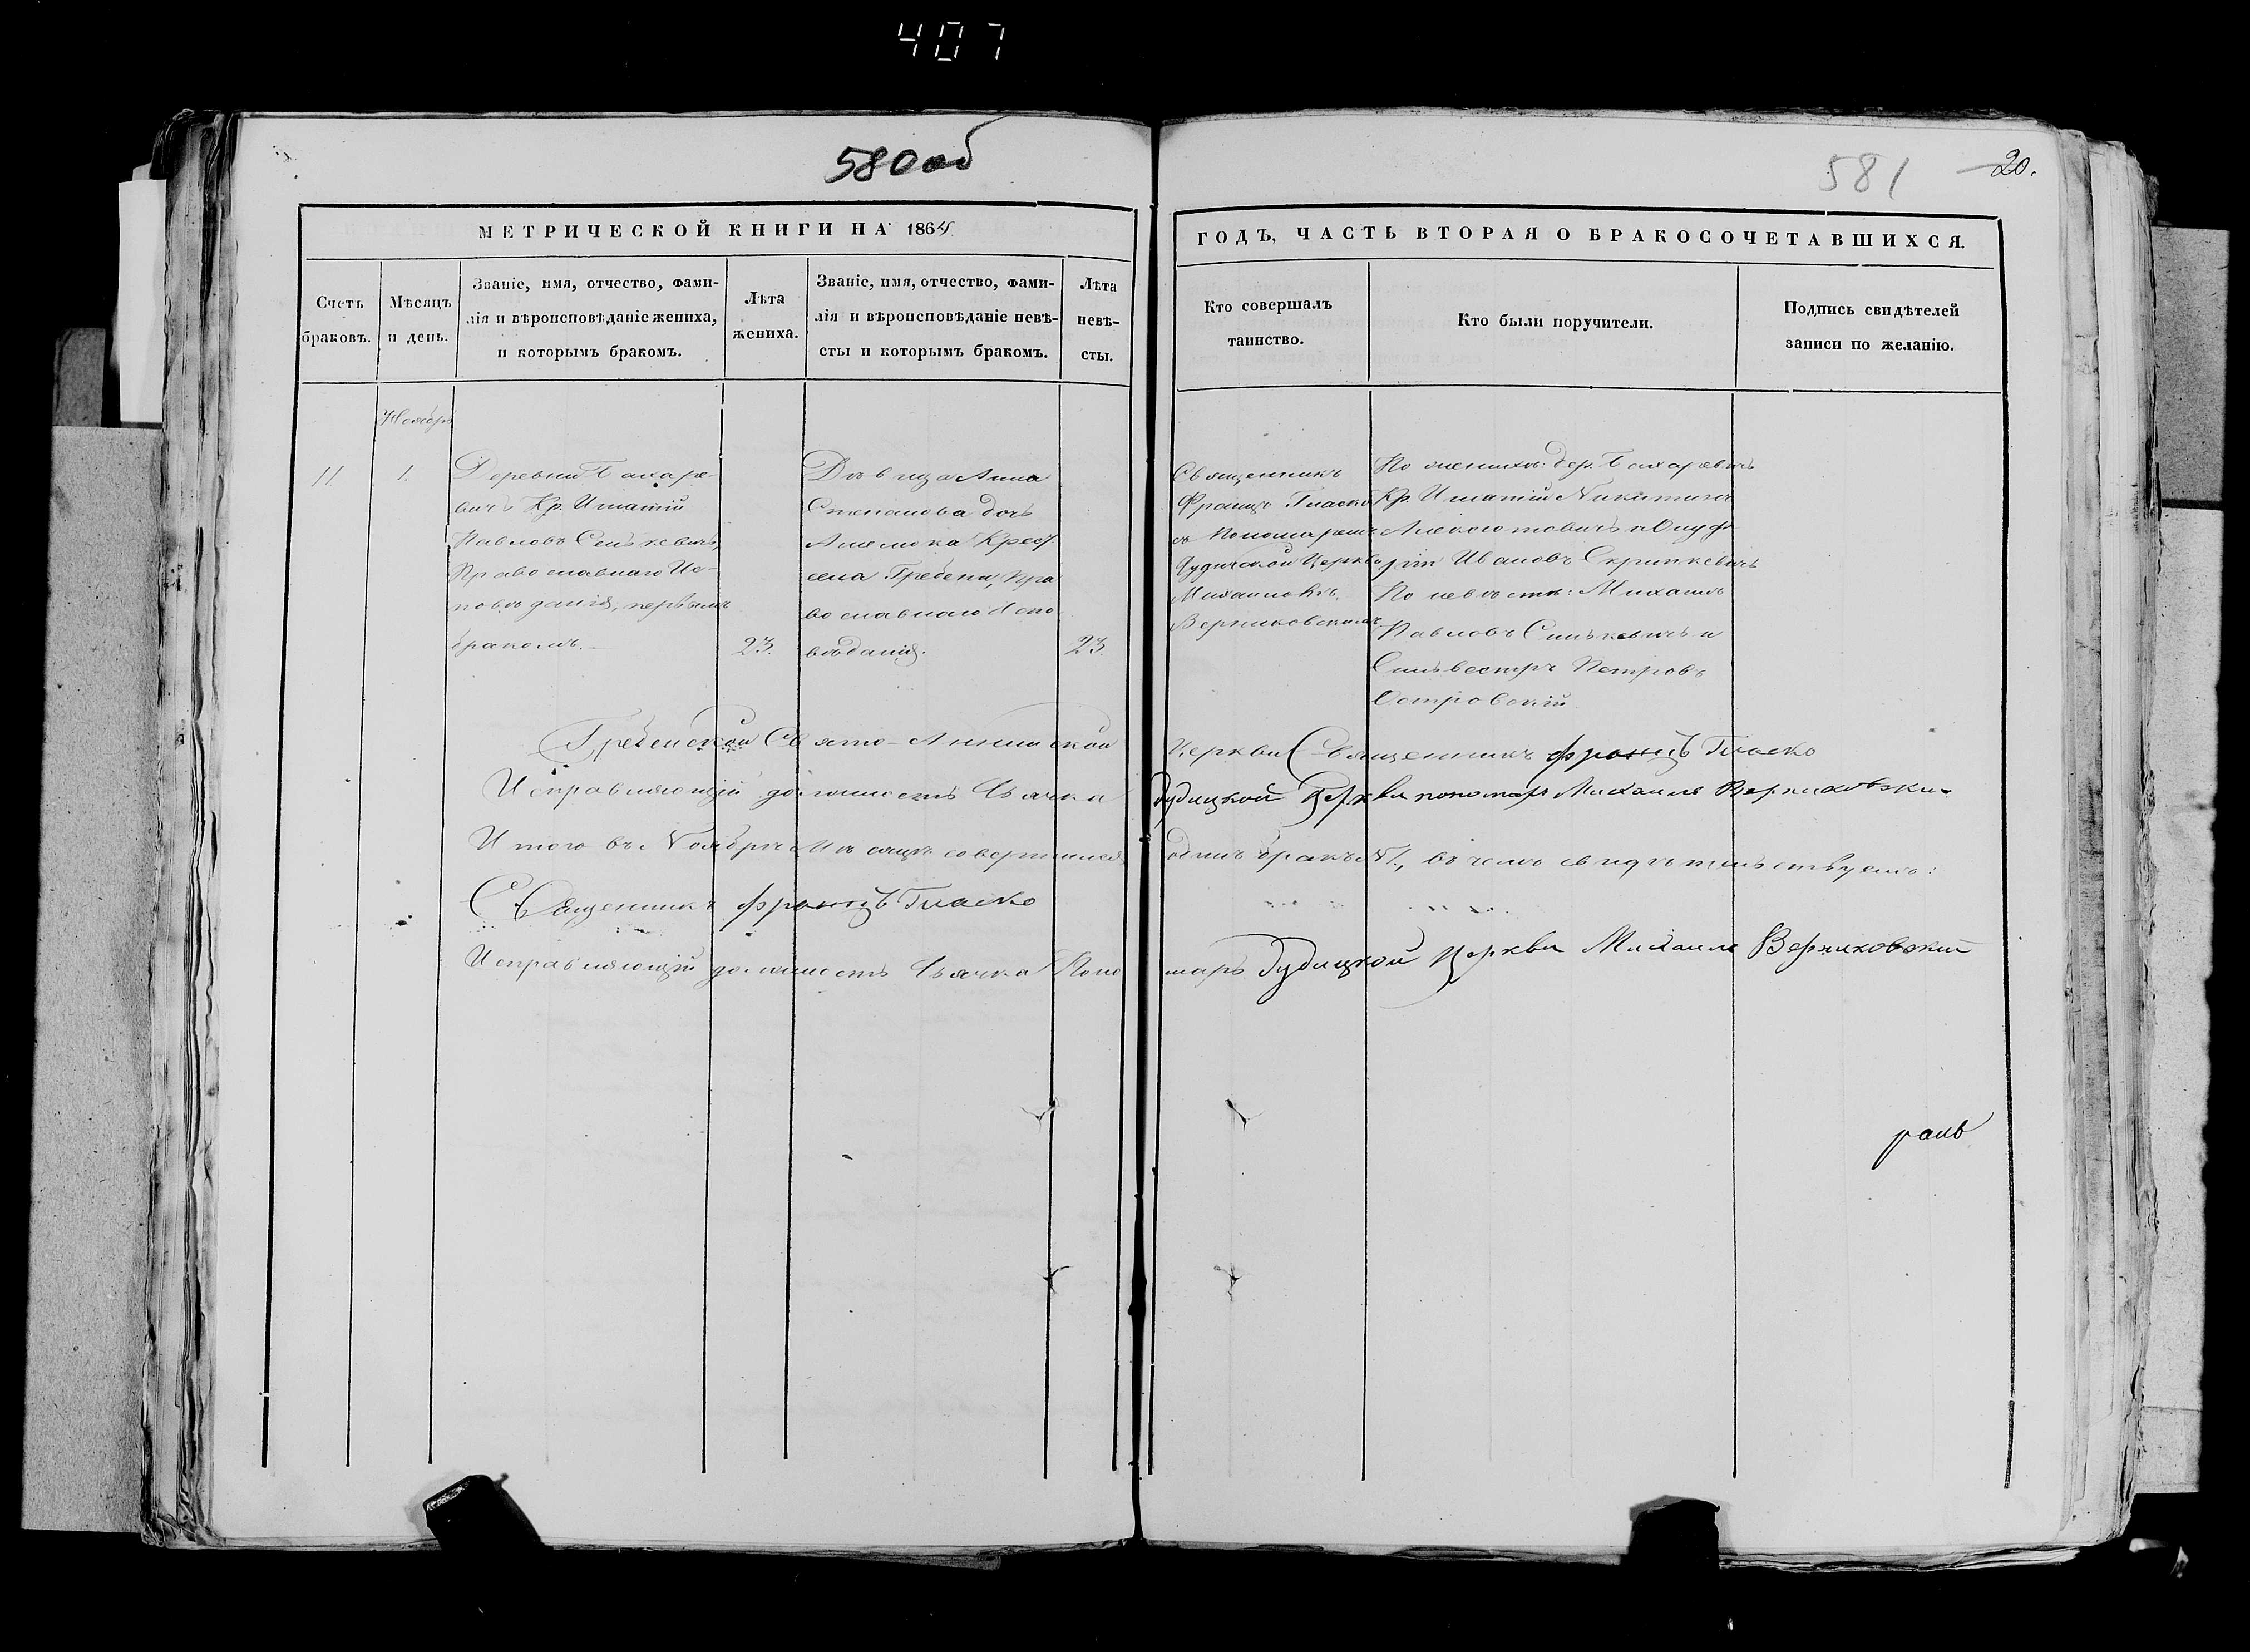 407
580 об
581 20.
МЕТРИЧЕСКОЙ КНИГИ НА 1864
ГОДЪ, ЧАСТЬ ВТОРАЯ О БРАКОСОЧЕТАВШИХСЯ.
Счетъ
браковъ.
Мѣсяцъ
и день.
Званіе, имя, отчество, фами-
лія и вѣроисповѣданіе жениха,
и которымъ бракомъ.
Лѣта
жениха.
Званіе, имя, отчество, фами-
лія и вѣроисповѣданіе невѣ-
сты и которымъ бракомъ.
Лѣта
невѣ-
сты.
Кто совершалъ
таинство.
Кто были поручители.
Подпись свидѣтелей
записи по желанію.
Ноябрь
11
1.
Деревни Бахаре-
вичъ Кр. Игнатій
Павловъ Сенькевичъ,
Православнаго Ис-
повѣданія, первымъ
бракомъ.
23.
Дѣвица Анна
Степанова дочь
Крест.
села Гребени, Пра
вославнаго Испо
вѣданія.
23
Священникъ
Францъ Гласко
съ Пономаремъ
Дудичской Церкви
Михаиломъ
Верниковскимъ
По женихѣ: дер. Бахаревичъ
Кр. Игнатій Никитинъ
и Онуф
рій Ивановъ Скрипкевичъ
По невѣстѣ: Михаилъ
Павловъ Сенькевичъ и
Сильвестръ Петровъ
Островскій
Гребенской Свято-Аннинской Церкви Священникъ Францъ Гласко
Исправляющій должность Дьячка Дудицкой Церкви пономаръ Михаилъ Верниковски-
Итого въ Ноябрѣ Мѣсяцѣ совершился одинъ бракъ №1, въ чемъ свидѣтельствуемъ:
Священникъ Францъ Гласко
Исправляющій должность Дьячка Поно маръ Дудицкой Церкви Михаилъ Верниковский